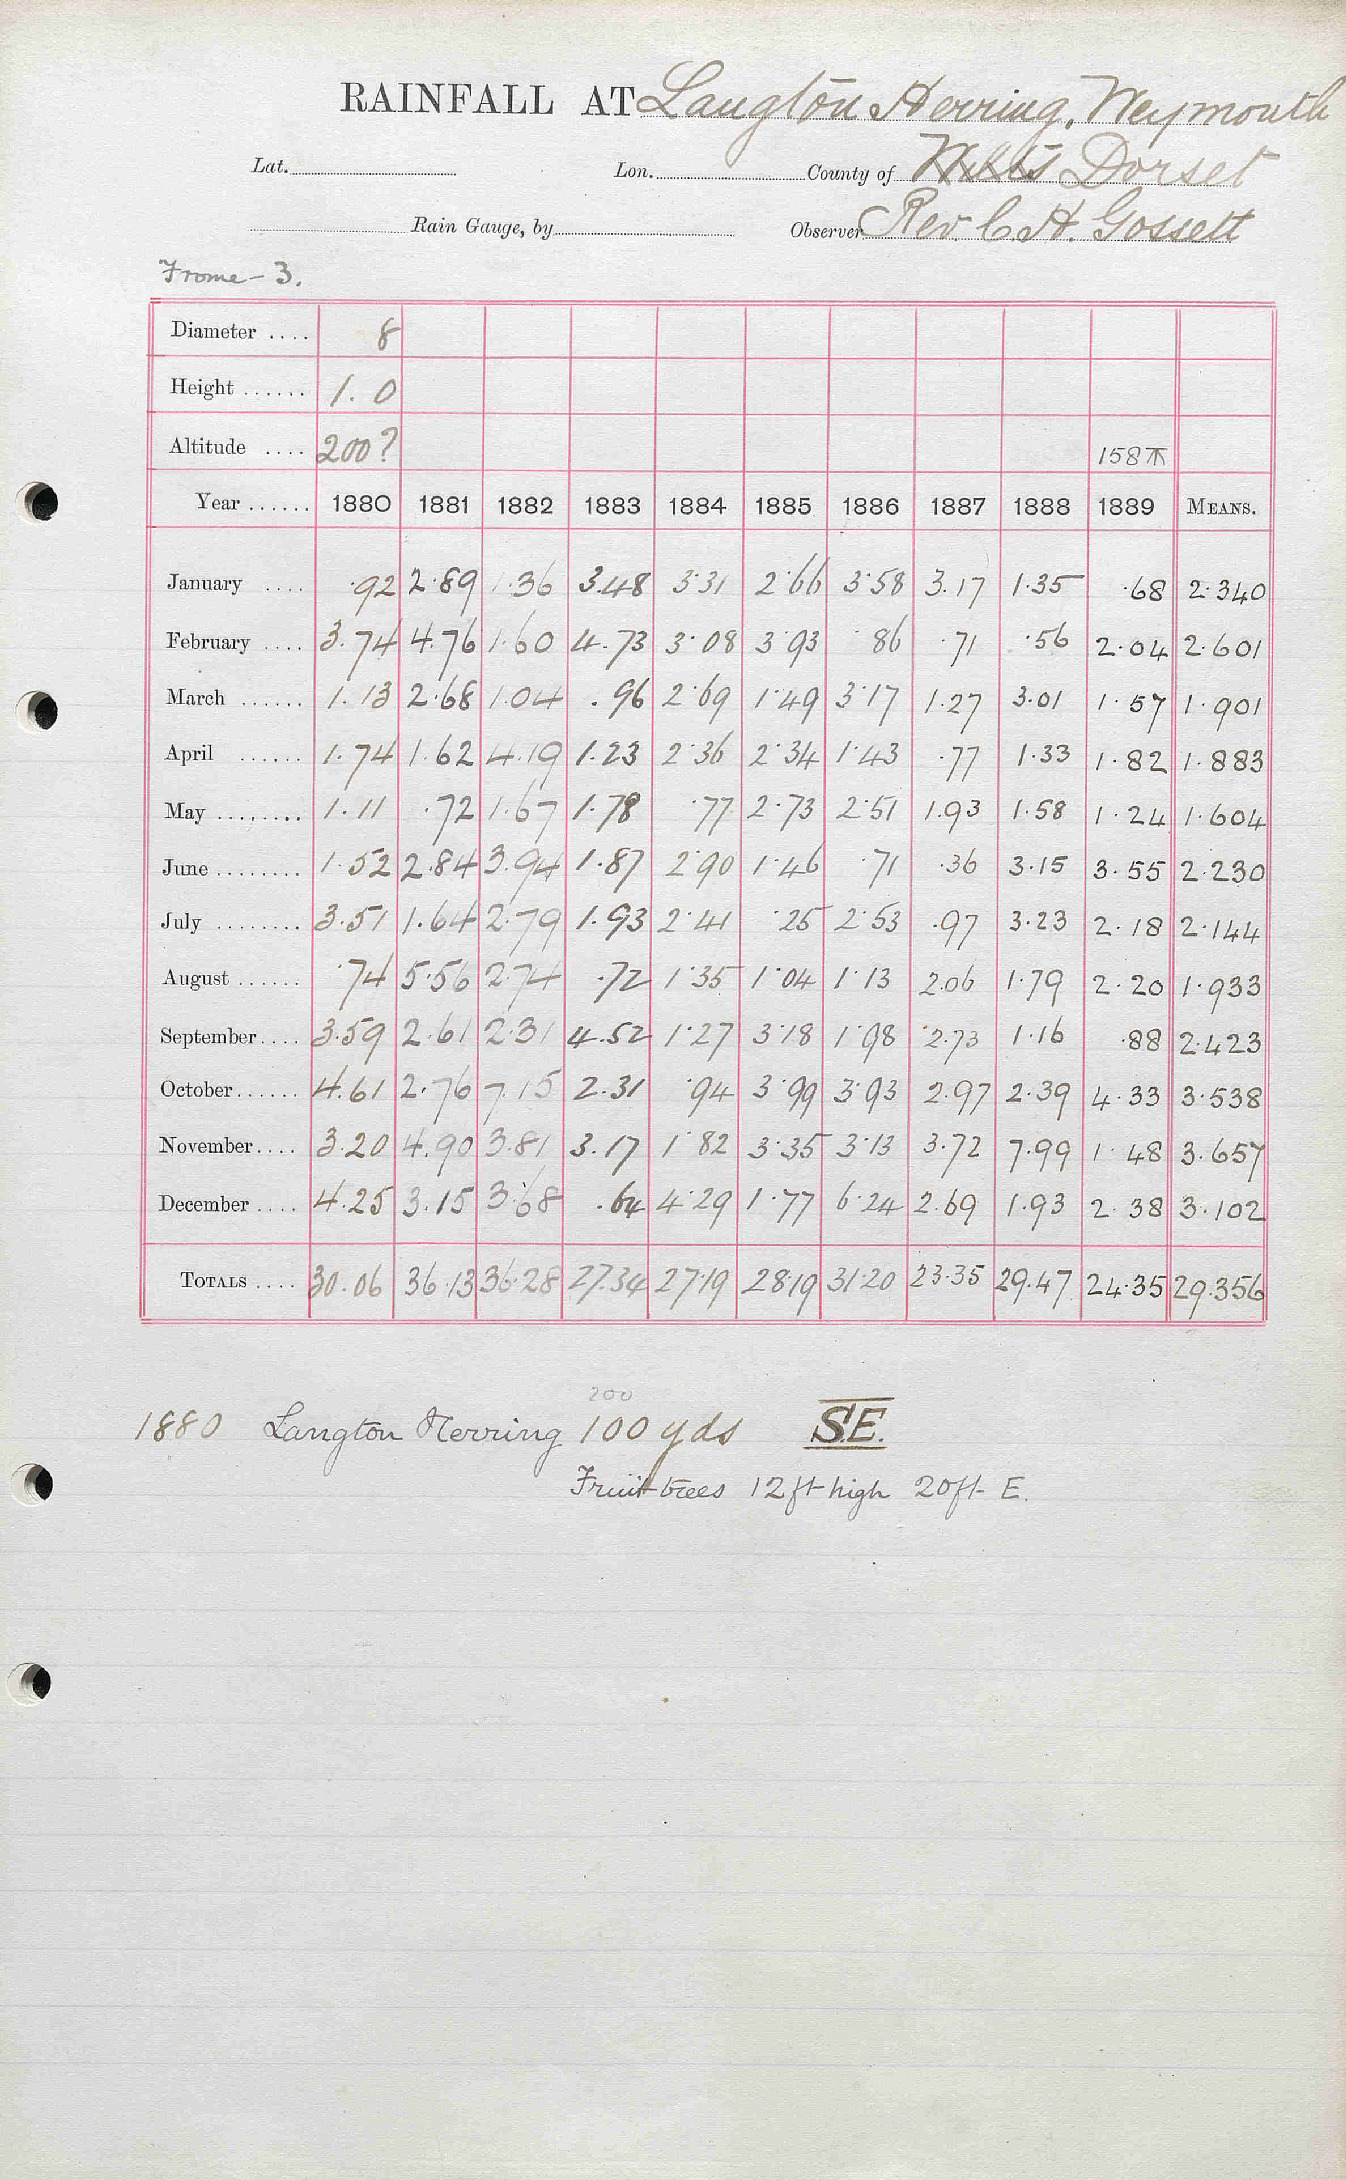 RAINFALL AT Langton Herring, Weymouth
Lat. Lon. County of Wilts Dorset
Rain Gauge, by Observer Rev. C. H. Gossett
Frome - 3.
Diameter .... 8
Height ...... 1. 0
Altitude .... 200? 158
Year ...... 1880 1881 1882 1883 1884 1885 1886 1887 1888 1889 MEANS.
January .... .92 2.89 1.36 3.48 3.31 2.66 3.58 3.17 1.35 .68 2.340
February .... 3.74 4.76 1.60 4.73 3.08 3.93 .86 .71 .56 2.04 2.601
March ...... 1.13 2.68 1.04 .96 2.69 1.49 3.17 1.27 3.01 1.57 1.901
April ...... 1.74 1.62 4.19 1.23 2.36 2.34 1.43 .77 1.33 1.82 1.883
May ........ 1.11 .72 1.67 1.78 .77 2.73 2.51 1.93 1.58 1.24 1.604
June ........ 1.52 2.84 3.94 1.87 2.90 1.46 .71 .36 3.15 3.55 2.230
July ........ 3.51 1.64 2.79 1.93 2.41 .25 2.53 .97 3.23 2.18 2.144
August ...... .74 5.56 2.74 .72 1.35 1.04 1.13 2.06 1.79 2.20 1.933
September.... 3.59 2.61 2.31 4.52 1.27 3.18 1.98 2.73 1.16 .88 2.423
October...... 4.61 2.76 7.15 2.31 .94 3.99 3.93 2.97 2.39 4.33 3.538
November.... 3.20 4.90 3.81 3.17 1.82 3.35 3.13 3.72 7.99 1.48 3.657
December .... 4.25 3.15 3.68 .64 4.29 1.77 6.24 2.69 1.93 2.38 3.102
TOTALS .... 30.06 36.13 36.28 27.34 27.19 28.19 31.20 23.35 29.47 24.35 29.356
200
1880 Langton Herring 100 yds S.E.
Fruit trees 12ft high 20ft E.